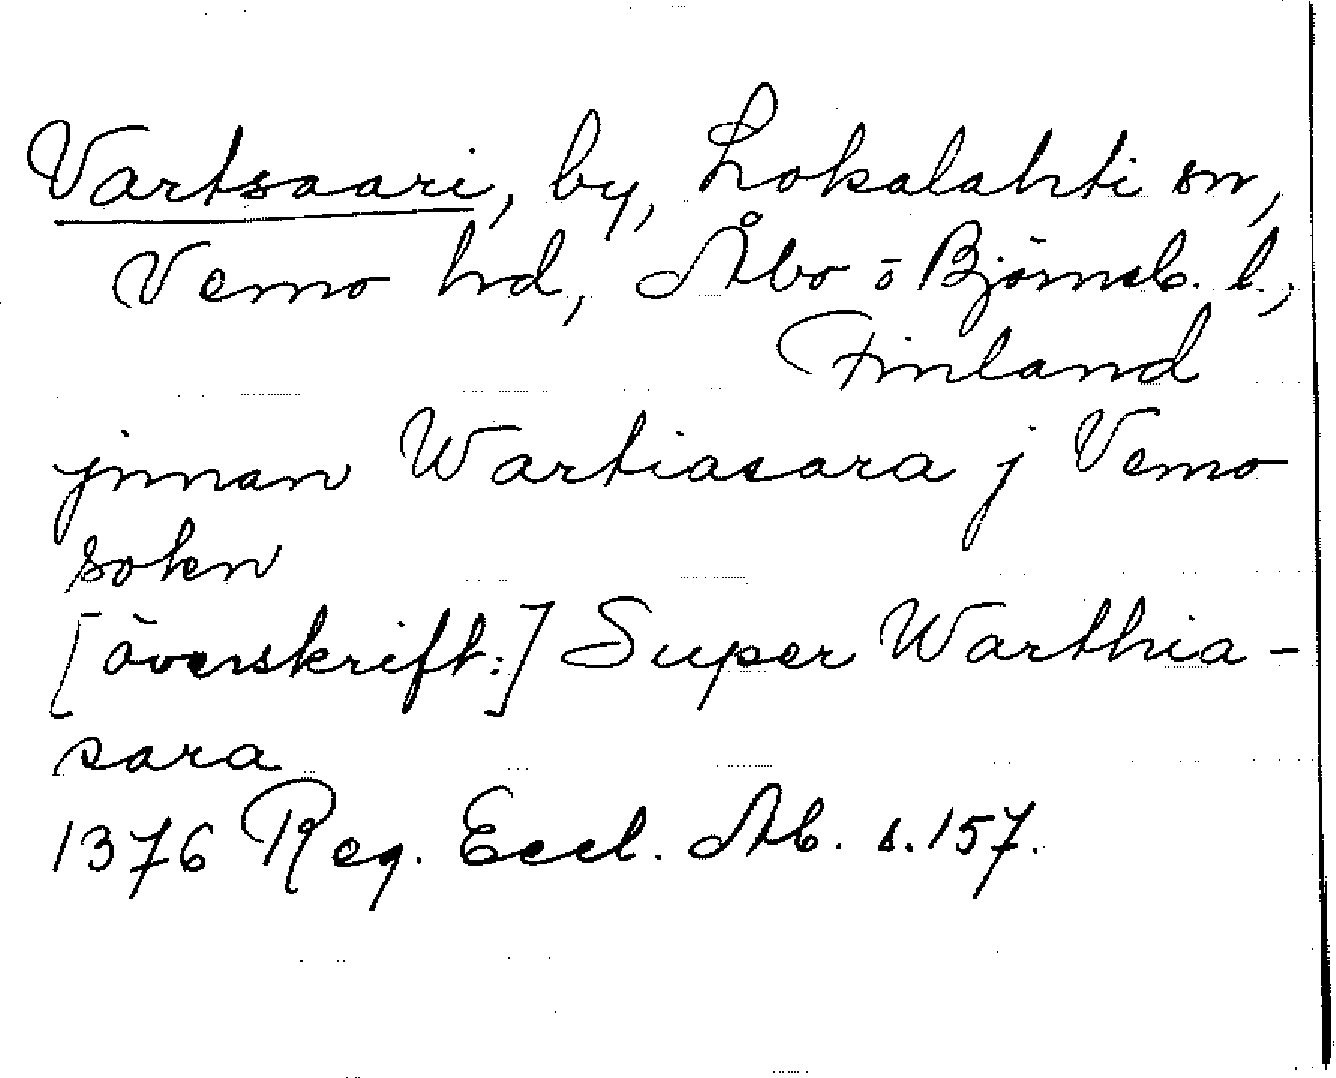 Vartsaari, by, Lokalahti sn,
Vemo hd, Åbo o Björneb. l.,
Finland
jnnan Wartiasara j Vemo
sokn
[överskrift:] Super Warthia-
sara
1376 Reg. Eccl. Ab. s. 157.